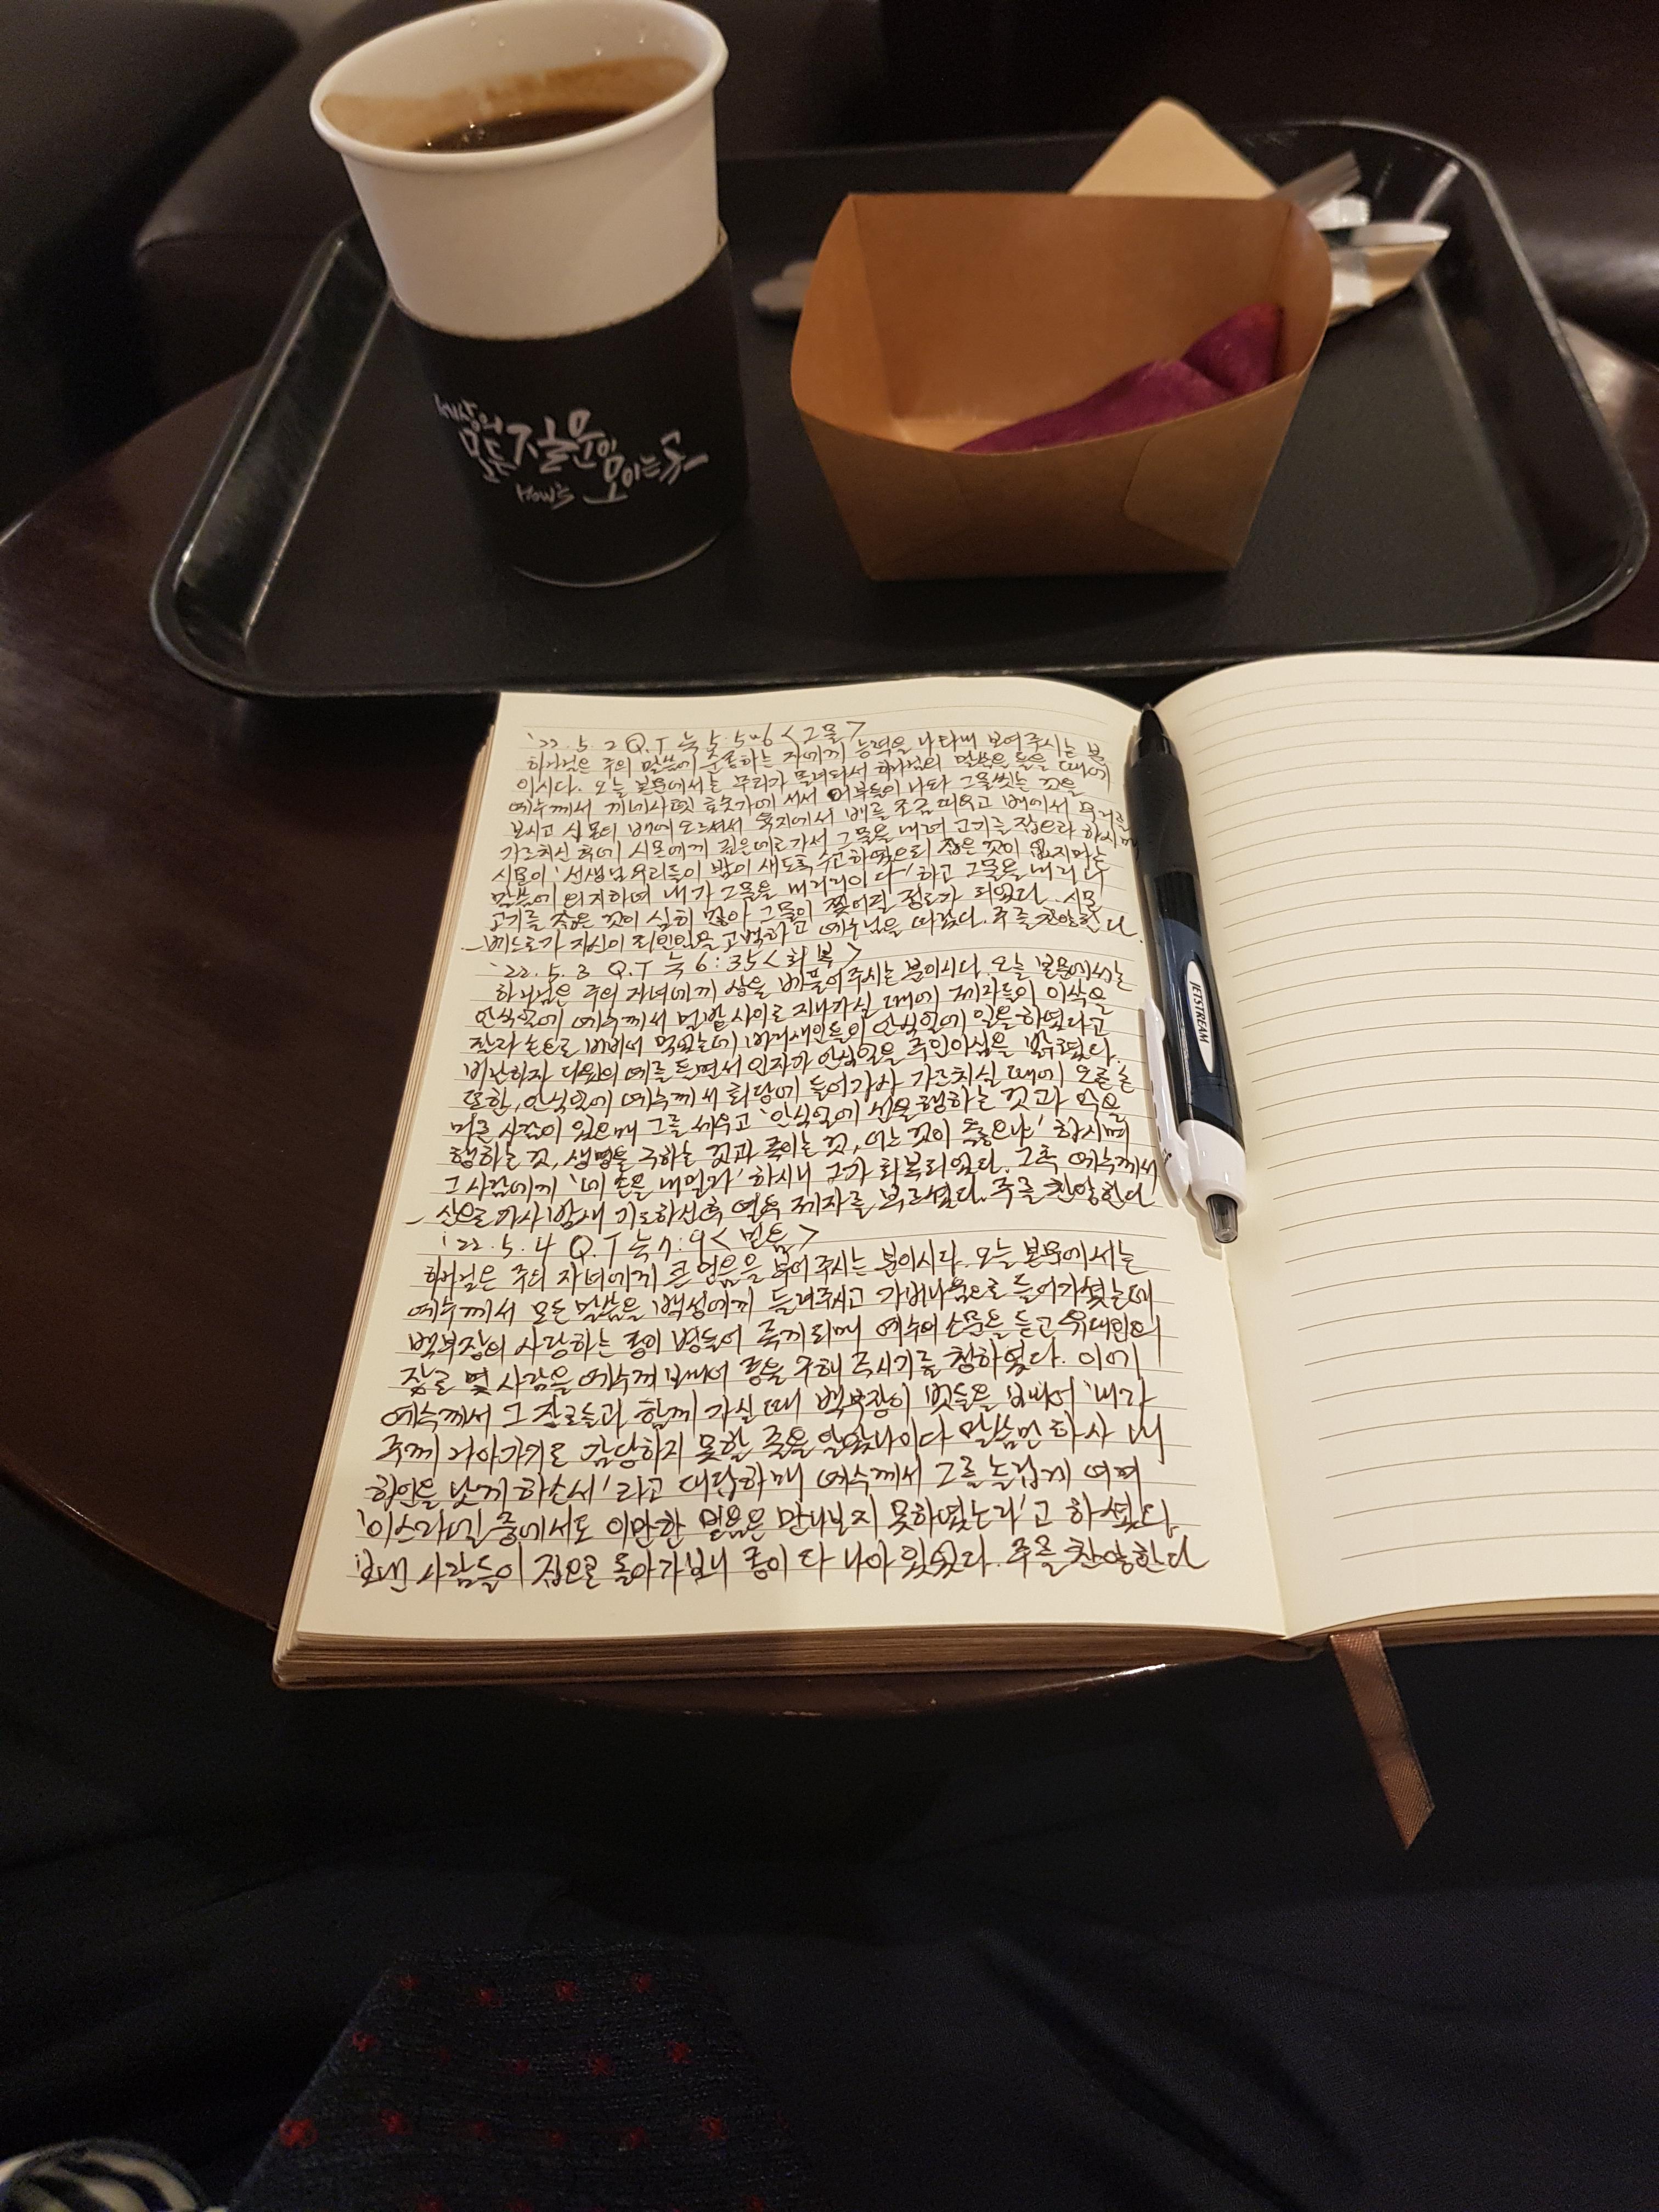 세상의
모든 질문이
모이는 곳
How's
JETSTREAM
'22. 5. 2 Q.T 눅 5:5-6 <그물>
하나님은 주의 말씀에 순종하는 자에게 능력을 나타내 보여주시는 분
이시다. 오늘 본문에서는 무리가 몰려와서 하나님의 말씀을 들을 때에
예수께서 게네사렛 호숫가에 서서 어부들이 나와 그물씻는 것을
보시고 시몬의 배에 오르셔서 육지에서 배를 조금 띄우고 배에서 무리를
가르치신 후에 시몬에게 깊은데로 가서 그물을 내려 고기를 잡으라 하시매
시몬이 '선생님 우리들이 밤이 새도록 수고하였으되 잡은 것이 없지마는
말씀에 의지하여 내가 그물을 내리리이다' 하고 그물을 내리니
고기를 잡은 것이 심히 많아 그물이 찢어질 정도가 되었다. 시몬
베드로가 자신이 죄인임을 고백하고 예수님을 따랐다. 주를 찬양한다.
'22. 5. 3 Q.T 눅 6:35 <회복>
하나님은 주의 자녀에게 상을 베풀어주시는 분이시다. 오늘 본문에서는
안식일에 예수께서 밀밭 사이로 지나가실 때에 제자들이 이삭을
잘라 손으로 비비어 먹었는데 바리새인들이 안식일에 일을 하였다고
비난하자 다윗의 예를 들면서 인자가 안식일을 주인이심을 밝혔다.
또한, 안식일에 예수께서 회당에 들어가사 가르치실 때에 오른손
마른 사람이 있으매 그를 세우고 '안식일에 선을 행하는 것과 악을
행하는 것, 생명을 구하는 것과 죽이는 것, 어느 것이 옳으냐' 하시며
그 사람에게 '네 손을 내밀라' 하시니 그가 회복되었다. 그후 예수께서
산으로 가사 밤새 기도하신후 열두 제자를 부르셨다. 주를 찬양한다
'22. 5. 4 Q.T 눅 7:9 <믿음>
하나님은 주의 자녀에게 큰 믿음을 부어 주시는 분이시다. 오늘 본문에서는
예수께서 모든 말씀을 백성에게 들려주시고 가버나움으로 들어가셨는데
백부장의 사랑하는 종이 병들어 죽게 되매 예수의 소문을 듣고 유대인의
장로 몇 사람을 예수께 보내어 종을 구해 주시기를 청하였다. 이에
예수께서 그 장로들과 함께 가실 때 백부장이 벗들을 보내어 '내가
주께 나아가기로 감당하지 못할 줄을 알았나이다 말씀만 하사 내
하인을 낫게 하소서' 라고 대답하매 예수께서 그를 놀랍게 여겨
'이스라엘 중에서도 이만한 믿음은 만나보지 못하였노라'고 하셨다.
보낸 사람들이 집으로 돌아가보니 종이 다 나아 있었다. 주를 찬양한다